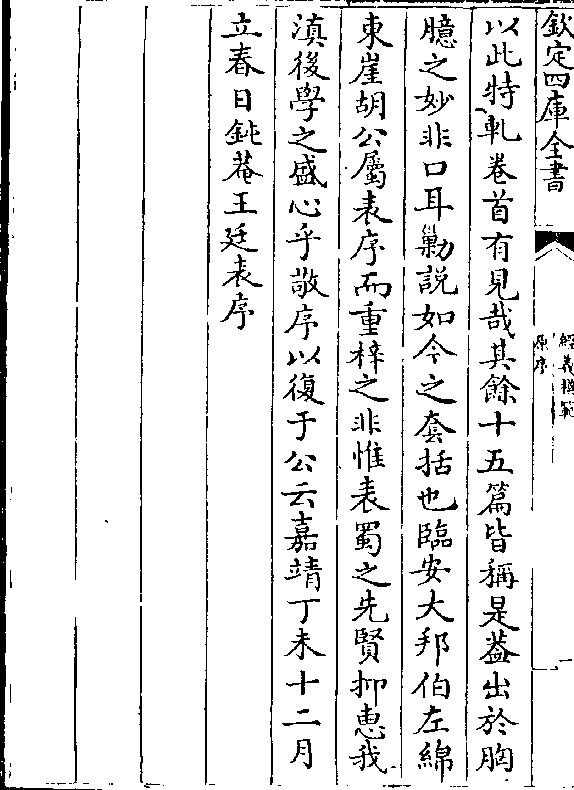 欽定四庫全書
經義模範
原序
以此特軋卷首有見哉其餘十五篇皆稱是葢出於胸
臆之妙非口耳勦説如今之套括也臨安大邦伯左綿
東崖胡公屬表序而重梓之非惟表蜀之先賢抑惠我
滇後學之盛心乎敬序以復于公云嘉靖丁未十二月
立春日鈍菴王廷表序